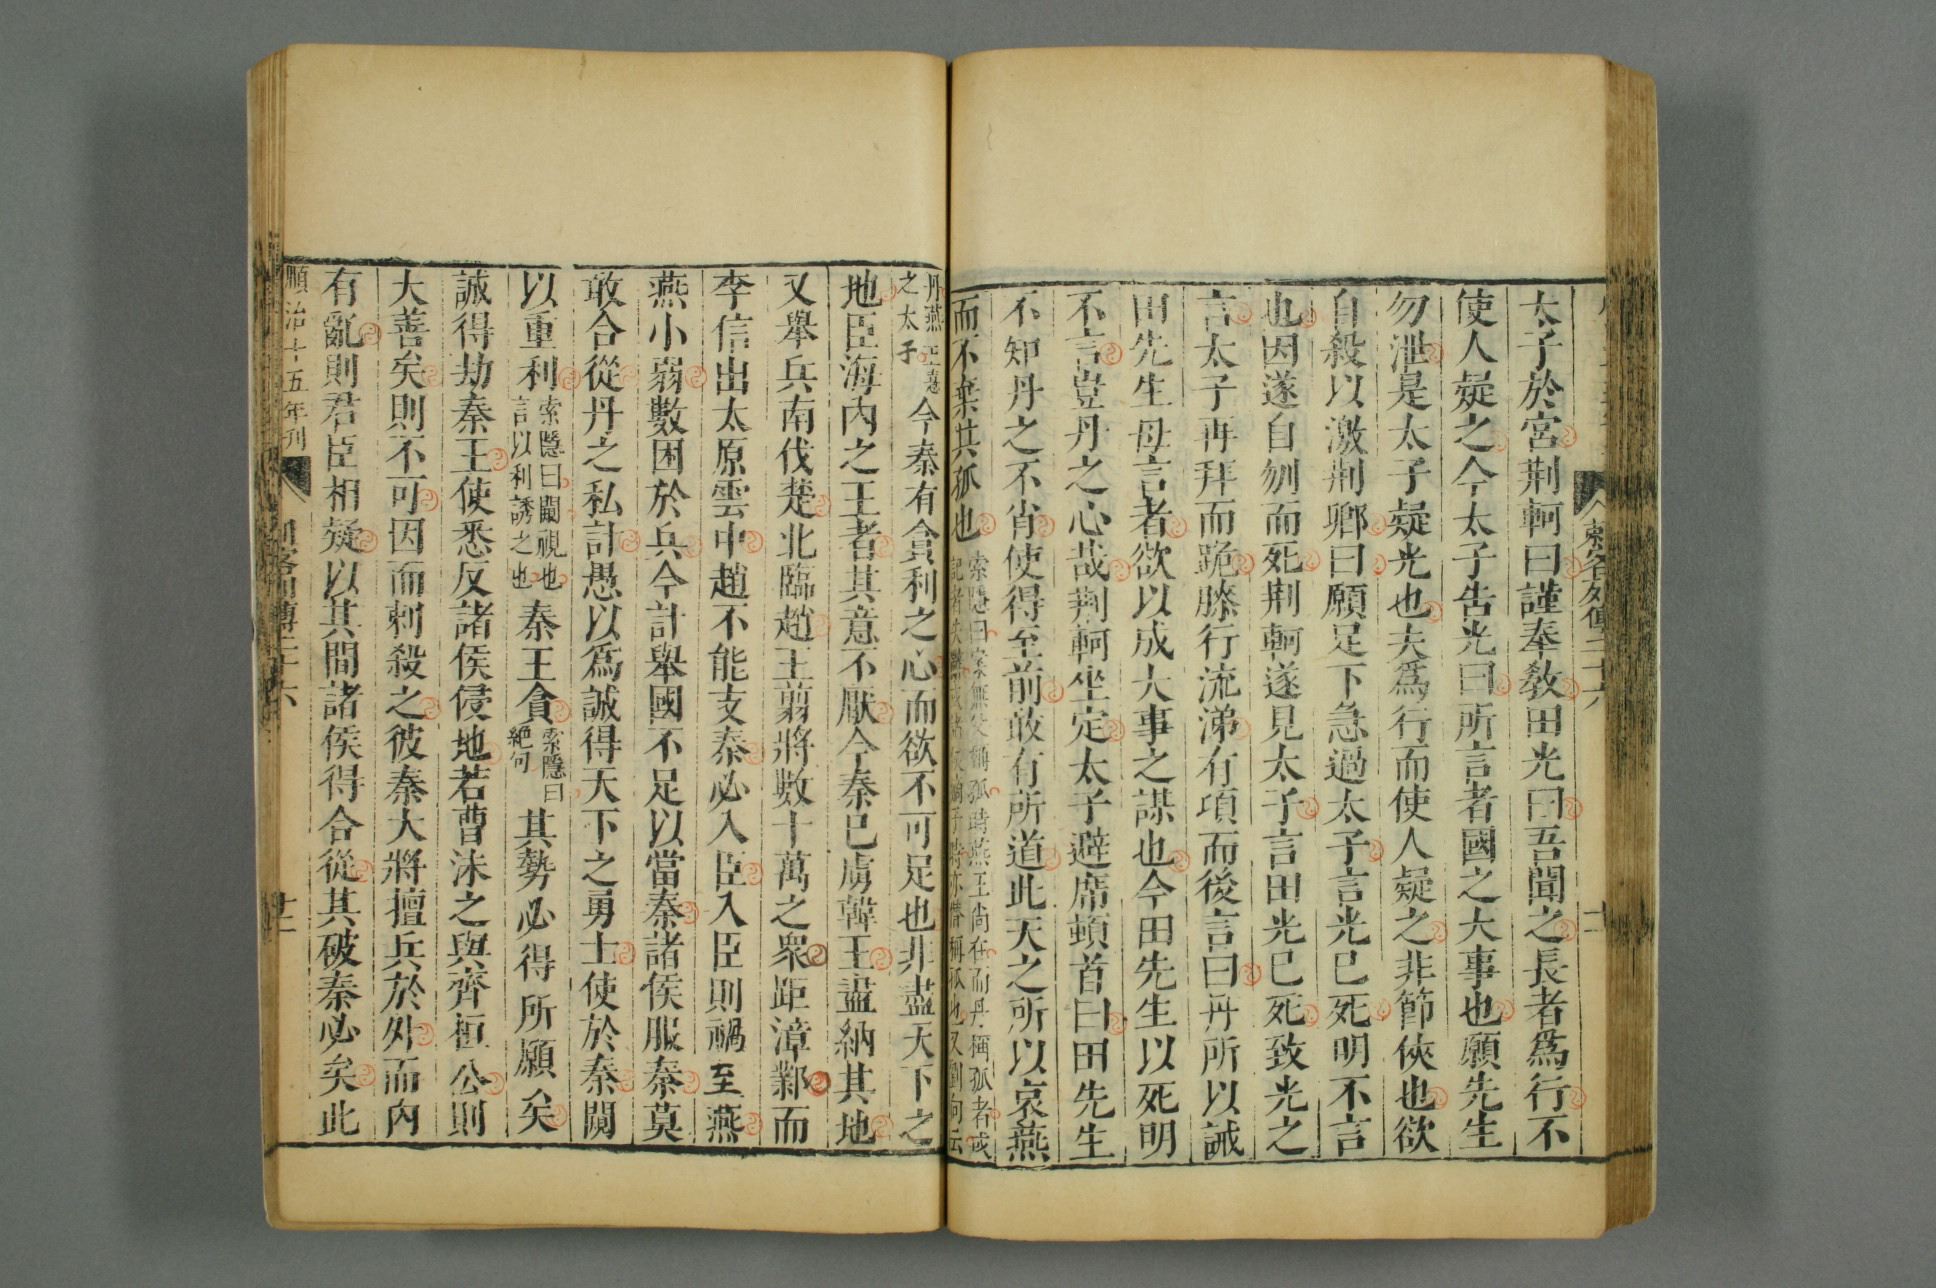 太子於宮荆軻曰謹奉敎田光曰吾聞之長者爲行不
使人疑之今太子告光曰所言者國之大事也願先生
勿泄是太子疑光也夫爲行而使人疑之非節俠也欲
自殺以激荆卿曰願足下急過太子言光已死明不言
也因遂自刎而死荆軻遂見太子言田光已死致光之
言太子再拜而跪膝行流涕有項而後言曰丹所以誡
田先生毋言者欲以成大事之謀也今田先生以死明
不言豈丹之心哉荆軻坐定太子避席頓首曰田先生
不知丹之不肖使得至前敢有所道此天之所以哀燕
而不棄其孤也
索隱曰案無父稱孤時燕王尚在而丹稱孤者或
記者失辭或諸侯嫡子時亦僭稱孤也又劉向云
丹燕王喜
之太子
今秦有貪利之心而欲不可足也非盡天下之
地臣海內之王者其意不厭今秦已虜韓王盡納其地
又舉兵南伐楚北臨趙王翦將數十萬之衆距漳鄴而
李信出太原雲中趙不能支秦必入臣入臣則禍至燕
燕小弱數困於兵今計舉國不足以當秦諸侯服秦莫
敢合從丹之私計愚以爲誠得天下之勇士使於秦闚
以重利
索隱曰闚視也
言以利誘之也
秦王貪
索隱曰
絶句
其勢必得所願矣
誠得劫秦王使悉反諸侯侵地若曹沫之與齊桓公則
大善矣則不可因而刺殺之彼秦大將擅兵於外而內
有亂則君臣相疑以其間諸侯得合從其破秦必矣此
順治十五年刊
列傳二十六
十二